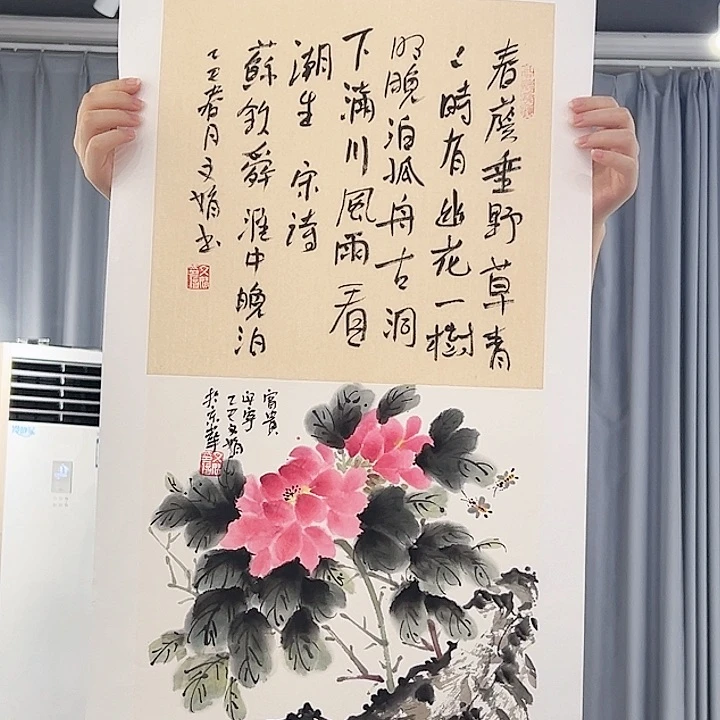 春廕垂野草青
々時有幽花一樹
明晚泊孤舟古洞
下滿川風雨看
潮生 宋詩
蘇欽舜 淮中晚泊
乙巳春月文娟书
富貴
乙巳文娟
於京華